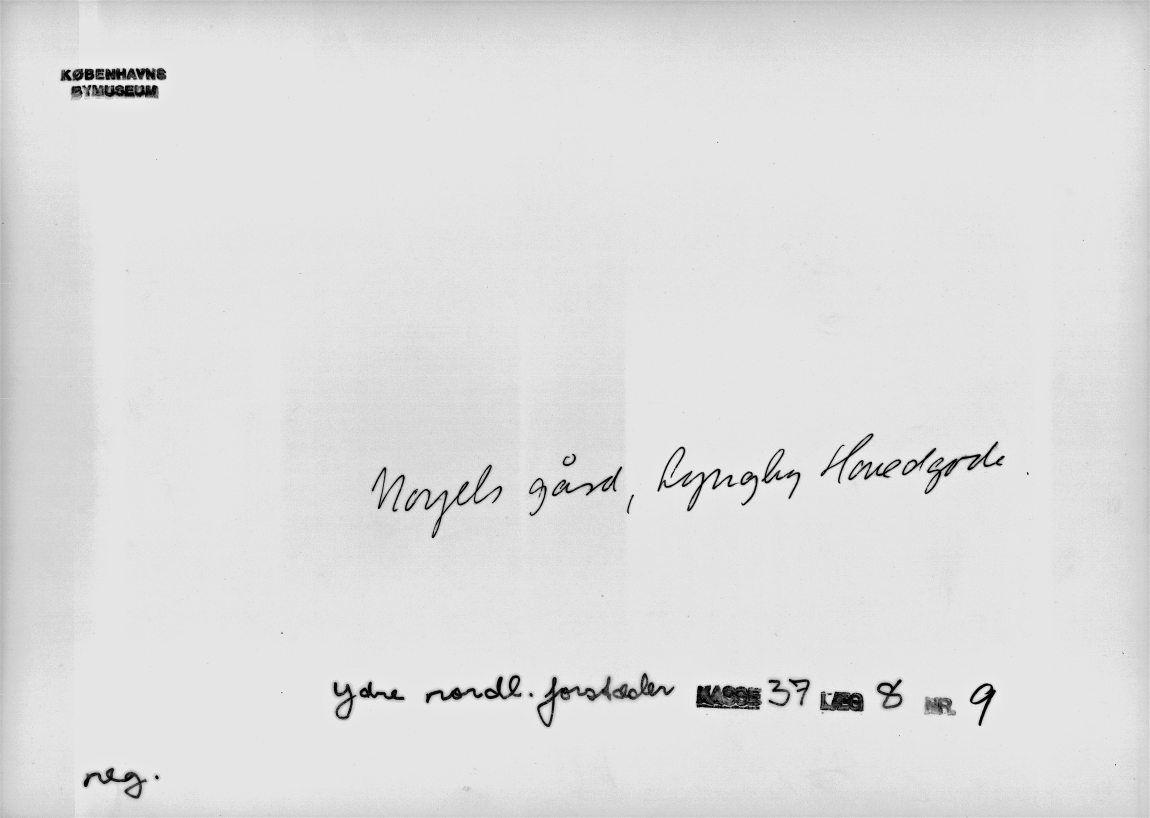 KØBENHAVNS
BYMUSEUM
gård, Lyngby Hovedgade.
Ydre nordl. forstæder KASSE 37 LÆG 8 NR. 9
neg.